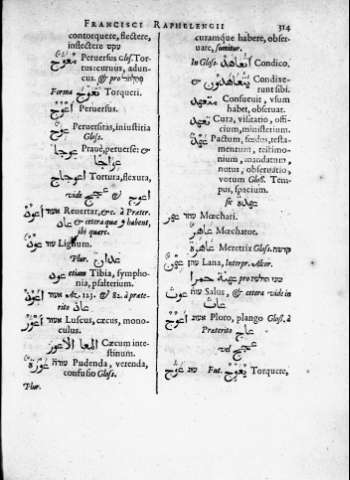 FRANCISCI RAPHELENGII 314
contorquere, flectere,
inflectere עקש
معوج Peruersus Glos. Tor-
tus: curuus, adun-
cus. &
Forma تعوج Torqueri.
أعوج Peruersus.
عوج Peruersitas, iniustitia
Glos.
عوجا Prauè, peruerse: &
اعوجاج Tortura, flexura,
vide عجيج & اعوج
Reuertar, &c. à Præter.
عاد & cetera quæ y habent,
ibi quære.
عود עוד Lignum.
Plur. عدان
عود etiam Tibia, sympho-
nia, psalterium.
אשר Act. 123. & 82. à præte-
rito عاذ
אשר Luscus, cæcus, mono-
culus.
المعا الاعور Cæcum inte-
stinum.
عورة Pudenda, verenda,
confusio Glos.
Plur.
curamque habere, obser-
uare, sumitur.
In Glos. Condico.
& يتعاهدون Condixe-
runt sibi.
Consueuit, vsum
habet, obseruat.
Cura, visitatio, offi-
cium, ministerium.
عهد Pactum, fœdus, testa-
mentum, testimo-
nium, mandatum,
notus, obseruatio,
votum Glos. Tem-
pus, spacium.
عهد
عهر Mœchari.
عاهر Mœchatue.
عاهرة Meretrix Glos. קדשה
عهن עהן Lana, Interpr. Alcor.
عهنة حمرا שני תולעת pro
عوث Salus, & cetera vide in
عاث
Ploro, plango Glos. à
Præterito عاج
vel عجيج
عوج Fut. يعوج Torquere,